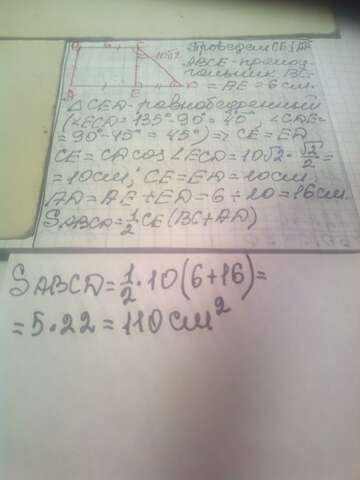 B 6 C
10√2
A E D
Проведем CE⊥AD
ABCE - прямоу-
гольник BC=
= AE = 6 см.
△CED - равнобедренный
(∠ECD = 135°-90° = 45°, ∠CDE=
= 90°-45° = 45°) ⇒ CE = ED
CE = CD cos ∠ECD = 10√2 · √2/2 =
= 10см; CE = ED = 10см.
AD = AE + ED = 6 + 10 = 16см.
SABCD = 1/2 CE (BC + AD)
SABCD = 1/2 · 10 (6+16) =
= 5 · 22 = 110 см²